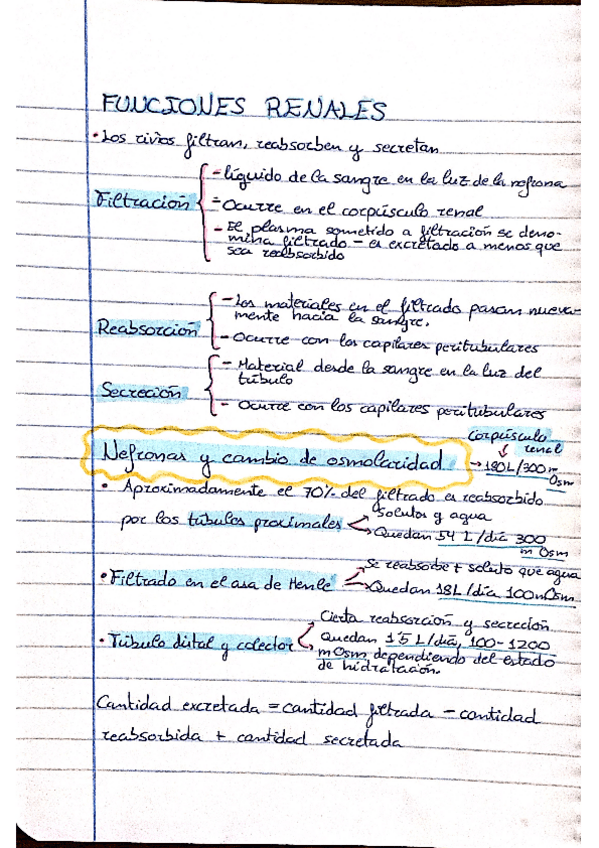 FUNCIONES RENALES
• Los riños filtran, reabsorben y secretan
Filtración
- líquido de la sangre en la luz de la nefrona
- Ocurre en el corpúsculo renal
- El plasma sometido a filtración se deno-
mina filtrado - es excretado a menos que
sea reabsorbido
Reabsorción
- Los materiales en el filtrado pasan nueva-
mente hacia la sangre.
- Ocurre con los capilares peritubulares
Secreción
- Material desde la sangre en la luz del
túbulo
- Ocurre con los capilares peritubulares
Nefronas y cambio de osmolaridad
corpúsculo
renal
→ 180L/300m
Osm
• Aproximadamente el 70% del filtrado es reabsorbido
por los túbulos proximales
solutos y agua
Quedan 54 L/día 300
m Osm
• Filtrado en el asa de Henle
Se reabsorbe + soluto que agua
Quedan 18L/día 100mOsm
• Túbulo distal y colector
Cierta reabsorción y secreción
Quedan 1'5 L/día, 100-1200
mOsm dependiendo del estado
de hidratación.
Cantidad excretada = cantidad filtrada - cantidad
reabsorbida + cantidad secretada